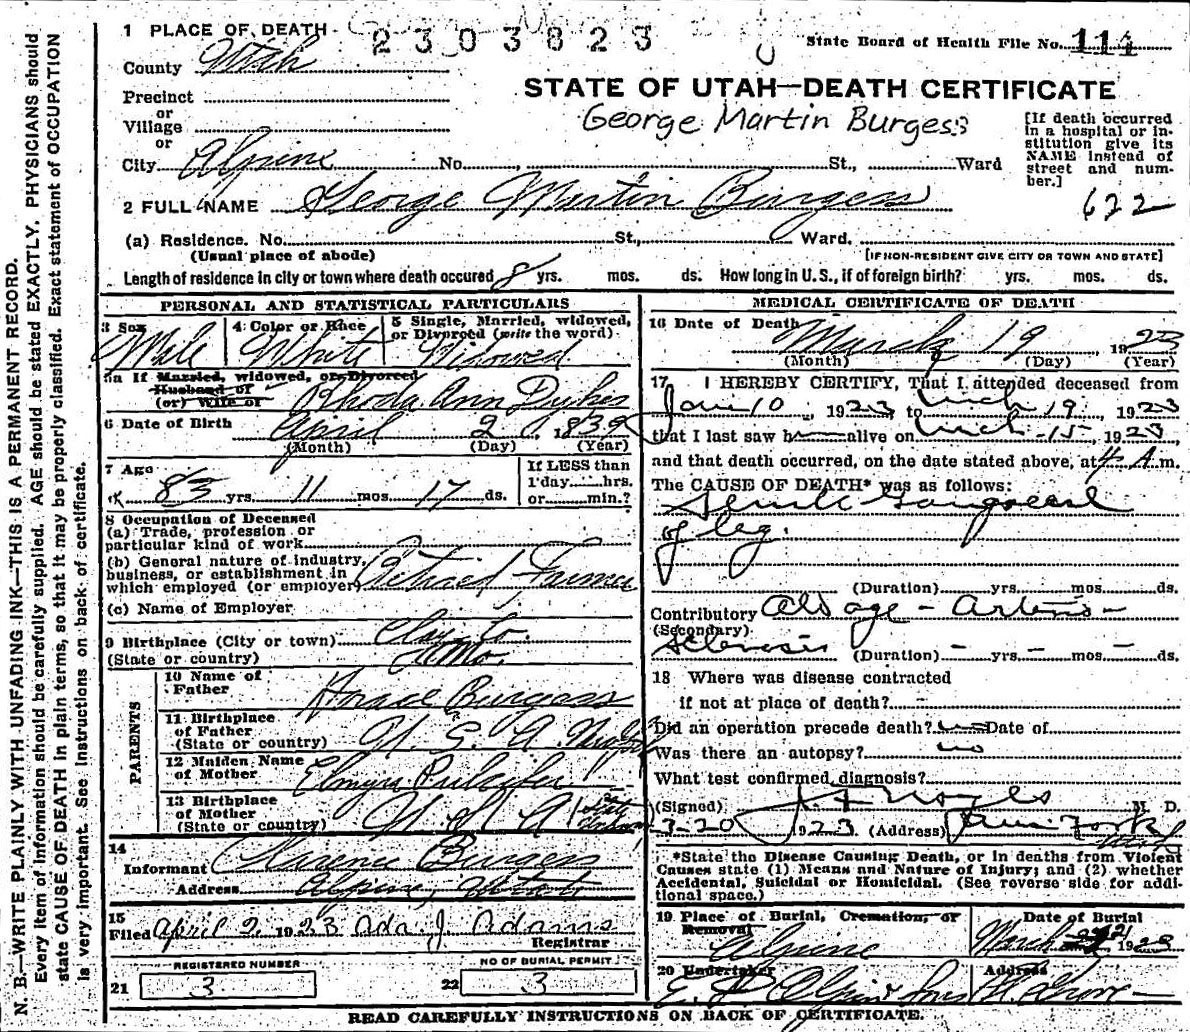 N. B.—WRITE PLAINLY WITH UNFADING INK—THIS IS A PERMANENT RECORD.
Every item of information should be carefully supplied. AGE should be stated EXACTLY. PHYSICIANS should
state CAUSE OF DEATH in plain terms, so that it may be properly classified. Exact statement of OCCUPATION
is very important. See instructions on back of certificate.
1 PLACE OF DEATH 2303823 State Board of Health File No. 114
County Utah
STATE OF UTAH—DEATH CERTIFICATE
Precinct
or
Village
or
George Martin Burgess
[If death occurred
in a hospital or in-
stitution give its
NAME instead of
street and num-
ber.]
City Alpine No. St., Ward
622
2 FULL NAME George Martin Burgess
(a) Residence. No. St., Ward.
(Usual place of abode) [IF NON-RESIDENT GIVE CITY OR TOWN AND STATE]
Length of residence in city or town where death occured 8 yrs. mos. ds. How long in U.S., if of foreign birth? yrs. mos. ds.
PERSONAL AND STATISTICAL PARTICULARS
3 Sex Male
4 Color or Race White
5 Single, Married, widowed,
or Divorced (write the word).
Widowed
5a If Married, widowed, or Divorced
Husband of
(or) Wife of Rhoda Ann Dykes
6 Date of Birth April 2 1839
(Month) (Day) (Year)
7 Age 83 yrs. 11 mos. 17 ds.
If LESS than
1 day hrs.
or min.?
8 Occupation of Deceased
(a) Trade, profession or
particular kind of work
(b) General nature of industry,
business, or establishment in
which employed (or employer) Retired Farmer
(c) Name of Employer
9 Birthplace (City or town) Clay Co.
(State or country) Mo.
PARENTS
10 Name of
Father Horace Burgess
11 Birthplace
of Father
(State or country) U. S. A.
12 Maiden Name
of Mother
13 Birthplace
of Mother
(State or country) U S A
14
Informant Clarence Burgess
Address Alpine, Utah
15
Filed April 2, 1923 Ada J. Adams
Registrar
REGISTERED NUMBER
21 3
NO OF BURIAL PERMIT
22 3
MEDICAL CERTIFICATE OF DEATH
16 Date of Death March 19 1923
(Month) (Day) (Year)
17 I HEREBY CERTIFY, That I attended deceased from
Jan 10, 1923 to Mch 19, 1923
that I last saw h alive on Mch 15, 1923,
and that death occurred, on the date stated above, at 4 A.m.
The CAUSE OF DEATH* was as follows:
Senile Gangrene
of leg.
(Duration) yrs. mos. ds.
Contributory Old age - Arterio-
(Secondary)
Sclerosis (Duration) yrs. mos. ds.
18 Where was disease contracted
if not at place of death?
Did an operation precede death? no Date of
Was there an autopsy? no
What test confirmed diagnosis?
(Signed) Noyes M. D.
3-20 1923 (Address)
*State the Disease Causing Death, or in deaths from Violent
Causes state (1) Means and Nature of Injury; and (2) whether
Accidental, Suicidal or Homicidal. (See reverse side for addi-
tional space.)
19 Place of Burial, Cremation, or
Removal
Alpine
Date of Burial
March 1923
20 Undertaker Address
READ CAREFULLY INSTRUCTIONS ON BACK OF CERTIFICATE.